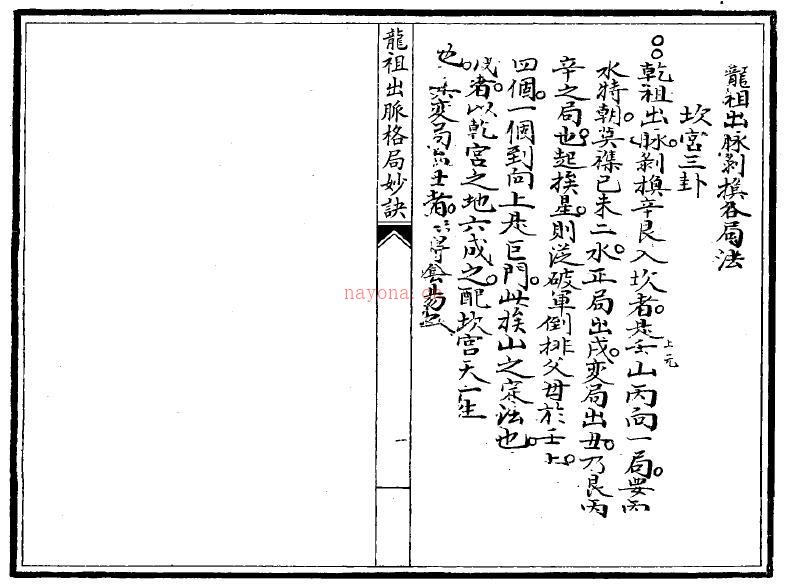 龍祖出脉剝換各局法
坎宮三卦
乾祖出脉。剝換辛艮入坎者。是壬山丙向一局。要丙
上元
水特朝。莫襍巳未二水。正局出戌。变局出丑。乃艮丙
辛之局也。起挨星。則從破軍倒排父母於壬上。
四個。一個到向上是巨門。此挨山之定法也。
戌者。以乾宮之地六成之。配坎宮天一生
也。变局出丑者。
龍祖出脈格局妙訣
一
nayona.cn